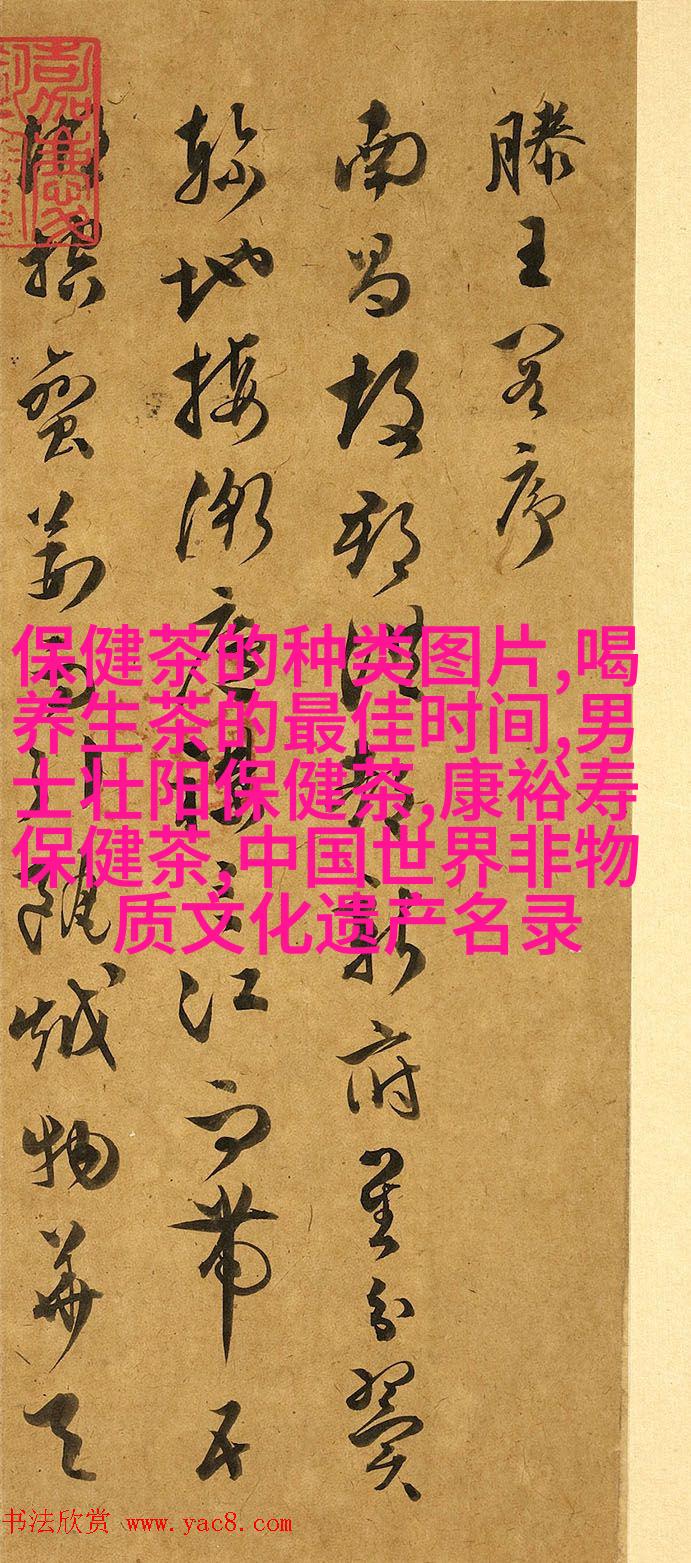 滕王閣序
南昌故郡洪都新府星分翼
軫地接衡廬襟三江而帶五
湖控蠻荊而引甌越物華天
保健茶的种类图片,喝
养生茶的最佳时间,男
士壮阳保健茶,康裕寿
保健茶,中国世界非物
质文化遗产名录
书法欣赏 www.yac8.com